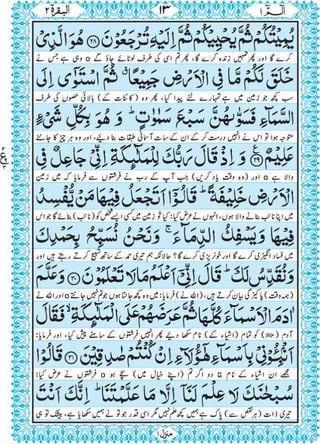 الٓمّٓ ١ ١٣ البقرة ٢
يُمِيْتُكُمْ ثُمَّ يُحْيِيْكُمْ ثُمَّ اِلَيْهِ تُرْجَعُوْنَ ﴿٢٨﴾ هُوَ الَّذِيْ
کرے گا اور پھر تمہیں زندہ کرے گا، پھر تم اسی کی طرف لوٹائے جاؤ گے o وہی ہے جس نے
خَلَقَ لَكُمْ مَّا فِي الْاَرْضِ جَمِيْعًا ۗ ثُمَّ اسْتَوٰٓى اِلَى
سب کچھ جو زمین میں ہے تمہارے لئے پیدا کیا، پھر وہ (کائنات کے) بالائی حصوں کی طرف
السَّمَآءِ فَسَوّٰىهُنَّ سَبْعَ سَمٰوٰتٍ ؕ وَ هُوَ بِكُلِّ شَيْءٍ
متوجہ ہوا تو اس نے انہیں درست کر کے ان کے سات آسمانی طبقات بنا دیئے، اور وہ ہر چیز کا جاننے
عَلِيْمٌ ﴿٢٩﴾ وَ اِذْ قَالَ رَبُّكَ لِلْمَلٰٓئِكَةِ اِنِّيْ جَاعِلٌ فِي
والا ہے o اور (وہ وقت یاد کریں) جب آپ کے رب نے فرشتوں سے فرمایا کہ میں زمین
الْاَرْضِ خَلِيْفَةً ؕ قَالُوْٓا اَتَجْعَلُ فِيْهَا مَنْ يُّفْسِدُ
میں اپنا نائب بنانے والا ہوں، انہوں نے عرض کیا: کیا تو زمین میں کسی ایسے شخص کو (نائب) بنائے گا جو اس
فِيْهَا وَ يَسْفِكُ الدِّمَآءَ ۚ وَ نَحْنُ نُسَبِّحُ بِحَمْدِكَ
میں فساد انگیزی کرے گا اور خونریزی کرے گا؟ حالانکہ ہم تیری حمد کے ساتھ تسبیح کرتے رہتے ہیں اور
وَ نُقَدِّسُ لَكَ ؕ قَالَ اِنِّيْٓ اَعْلَمُ مَا لَا تَعْلَمُوْنَ ﴿٣٠﴾ وَ عَلَّمَ
(ہمہ وقت) پاکیزگی بیان کرتے ہیں، (اللہ نے) فرمایا: میں وہ کچھ جانتا ہوں جو تم نہیں جانتے o اور اللہ نے
اٰدَمَ الْاَسْمَآءَ كُلَّهَا ثُمَّ عَرَضَهُمْ عَلَى الْمَلٰٓئِكَةِ ۙ فَقَالَ
آدم کو تمام (اشیاء کے) نام سکھا دیئے پھر انہیں فرشتوں کے سامنے پیش کیا، اور فرمایا:
اَنْۢبِـُٔوْنِيْ بِاَسْمَآءِ هٰٓؤُلَآءِ اِنْ كُنْتُمْ صٰدِقِيْنَ ﴿٣١﴾ قَالُوْا
مجھے ان اشیاء کے نام بتا دو اگر تم (اپنے خیال میں) سچے ہو o فرشتوں نے عرض کیا:
سُبْحٰنَكَ لَا عِلْمَ لَنَآ اِلَّا مَا عَلَّمْتَنَا ؕ اِنَّكَ اَنْتَ
تیری ذات (ہر نقص سے) پاک ہے ہمیں کچھ علم نہیں مگر اسی قدر جو تو نے ہمیں سکھایا ہے، بیشک تو ہی
منزل ١